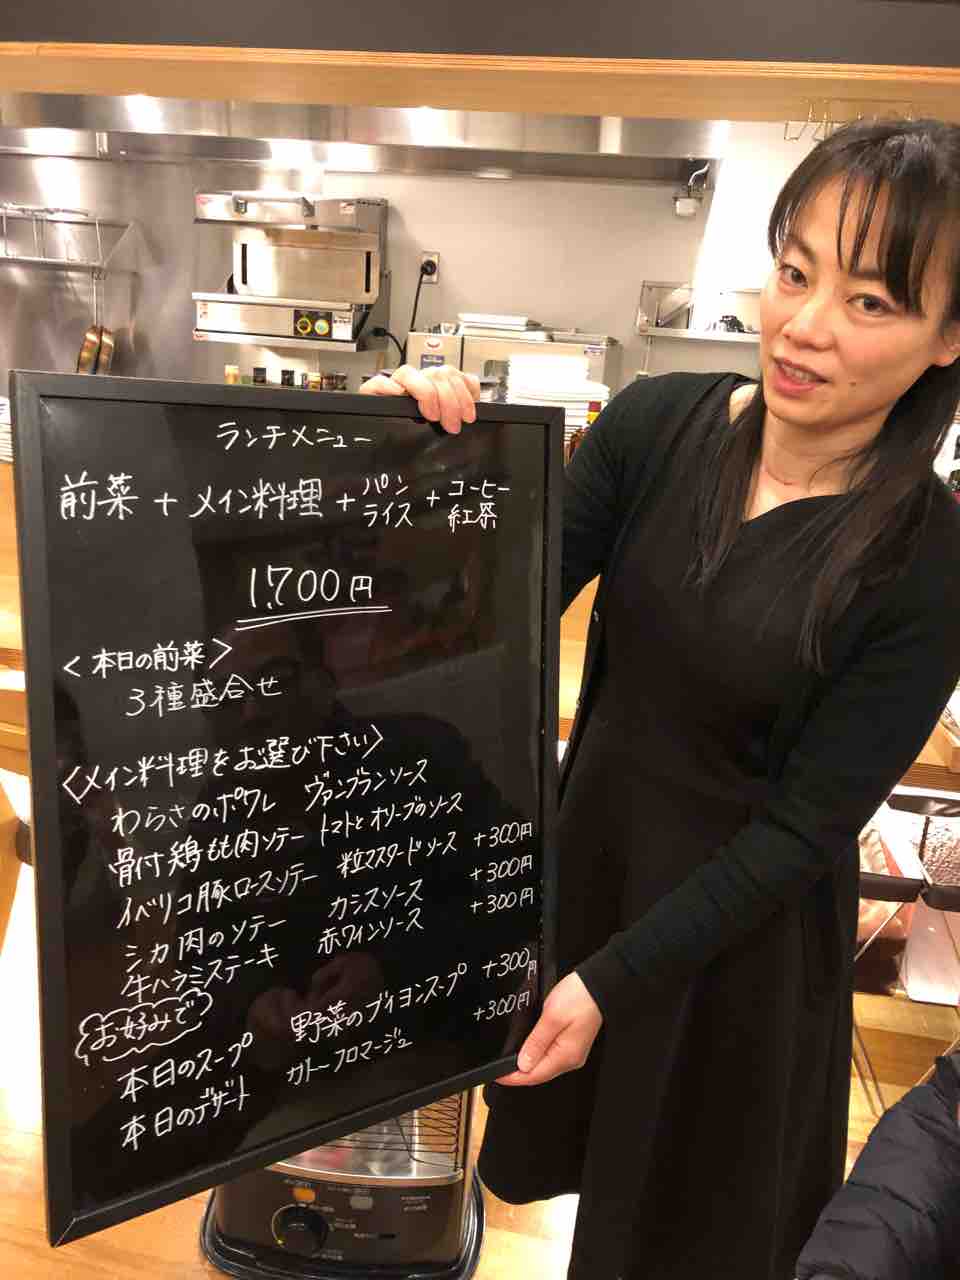 ランチメニュー
前菜 + メイン料理 + パン ライス + コーヒー 紅茶
1,700円
<本日の前菜>
3種盛合せ
<メイン料理をお選び下さい>
わらさのポワレ ヴァンブランソース
骨付鶏もも肉ソテー トマトとオリーブのソース
イベリコ豚ロースソテー 粒マスタードソース +300円
シカ肉のソテー カシスソース +300円
牛ハラミステーキ 赤ワインソース +300円
お好みで
本日のスープ 野菜のブイヨンスープ +300円
本日のデザート ガトーフロマージュ +300円